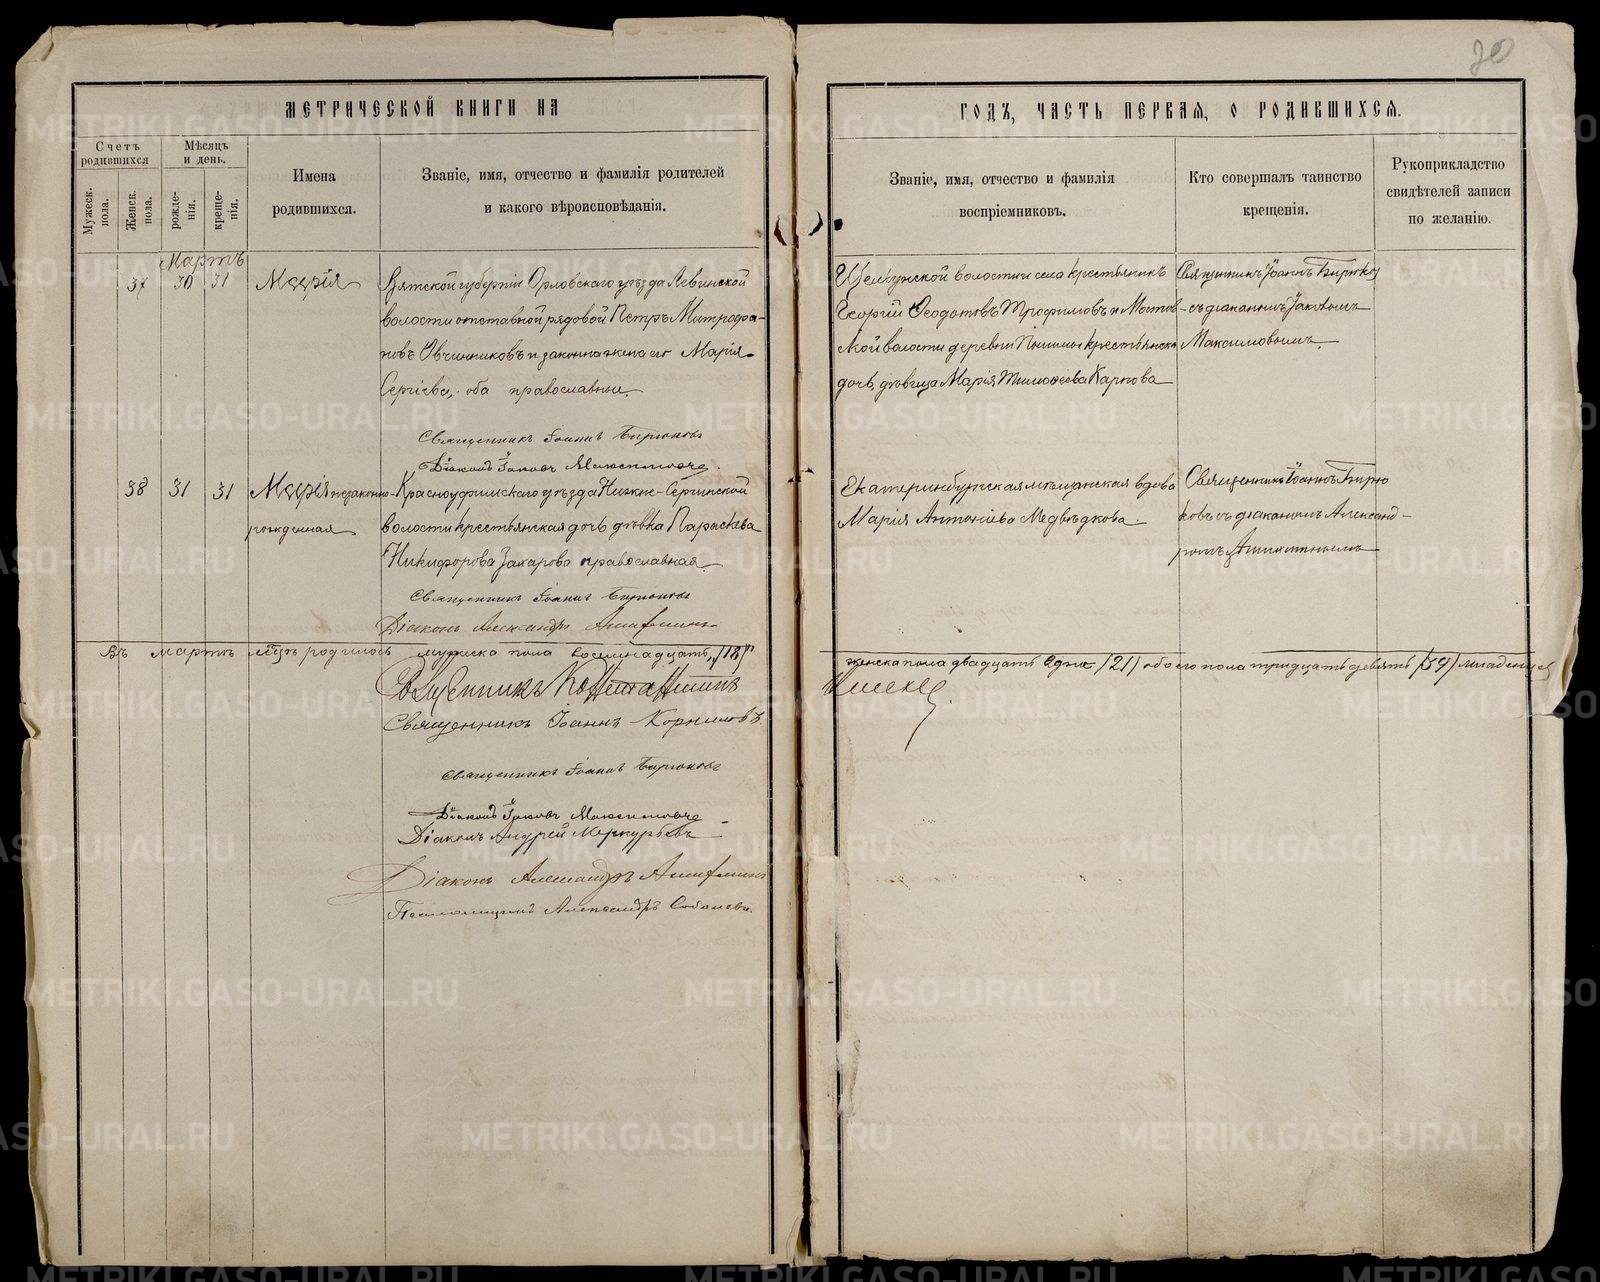 30
МЕТРИЧЕСКОЙ КНИГИ НА
ГОДЪ, ЧАСТЬ ПЕРВАЯ, О РОДИВШИХСЯ.
Счетъ родившихся
Мужеск. пола.
Женск. пола.
Мѣсяцъ и день.
рожденія.
крещенія.
Имена
родившихся.
Званіе, имя, отчество и фамилія родителей
и какого вѣроисповѣданія.
Званіе, имя, отчество и фамилія
воспріемниковъ.
Кто совершалъ таинство
крещенія.
Рукоприкладство
свидѣтелей записи
по желанію.
Мартъ
37 30 31 Марія
Вятской губерніи Орловскаго уѣзда Левинской
волости отставной рядовой Петръ Митрофа-
новъ Овчинниковъ и законная жена его Марія
Сергіева, оба православные.
волости и села крестьянинъ
Георгій Ѳеодотовъ Трофимовъ и
волости деревни крестьянска
дочь, дѣвица Марія Тимоѳеева Карпова
Священникъ Іоаннъ Бирюко
съ діакономъ Іаковомъ
Максимовымъ.
Священникъ Іоаннъ Бирюковъ
Діаконъ Іаковъ
38 31 31 Марія незаконно-
рожденная
Красноуфимскаго уѣзда Нижне-Сергинской
волости крестьянская дочь дѣвка Параскева
Никифорова Захарова православная.
Екатеринбургская мѣщанская вдова
Марія Антоніева Медвѣдкова.
Священникъ Іоаннъ Бирю
ковъ съ діакономъ Александ-
ромъ
Священникъ Іоаннъ Бирюковъ
Діаконъ Александръ
Въ мартѣ мѣсяцѣ родилось мужска пола восемнадцать "/18/"
женска пола двадцать одна /21/ обоего пола тридцать девять /39/ младенцев
Священникъ
Священникъ Іоаннъ Корниловъ.
Священникъ Іоаннъ Бирюковъ
Діаконъ Іаковъ
Діаконъ Андрей Меркурьевъ
Діаконъ Александръ
Псаломщикъ Александръ
METRIKI.GASO-URAL.RU